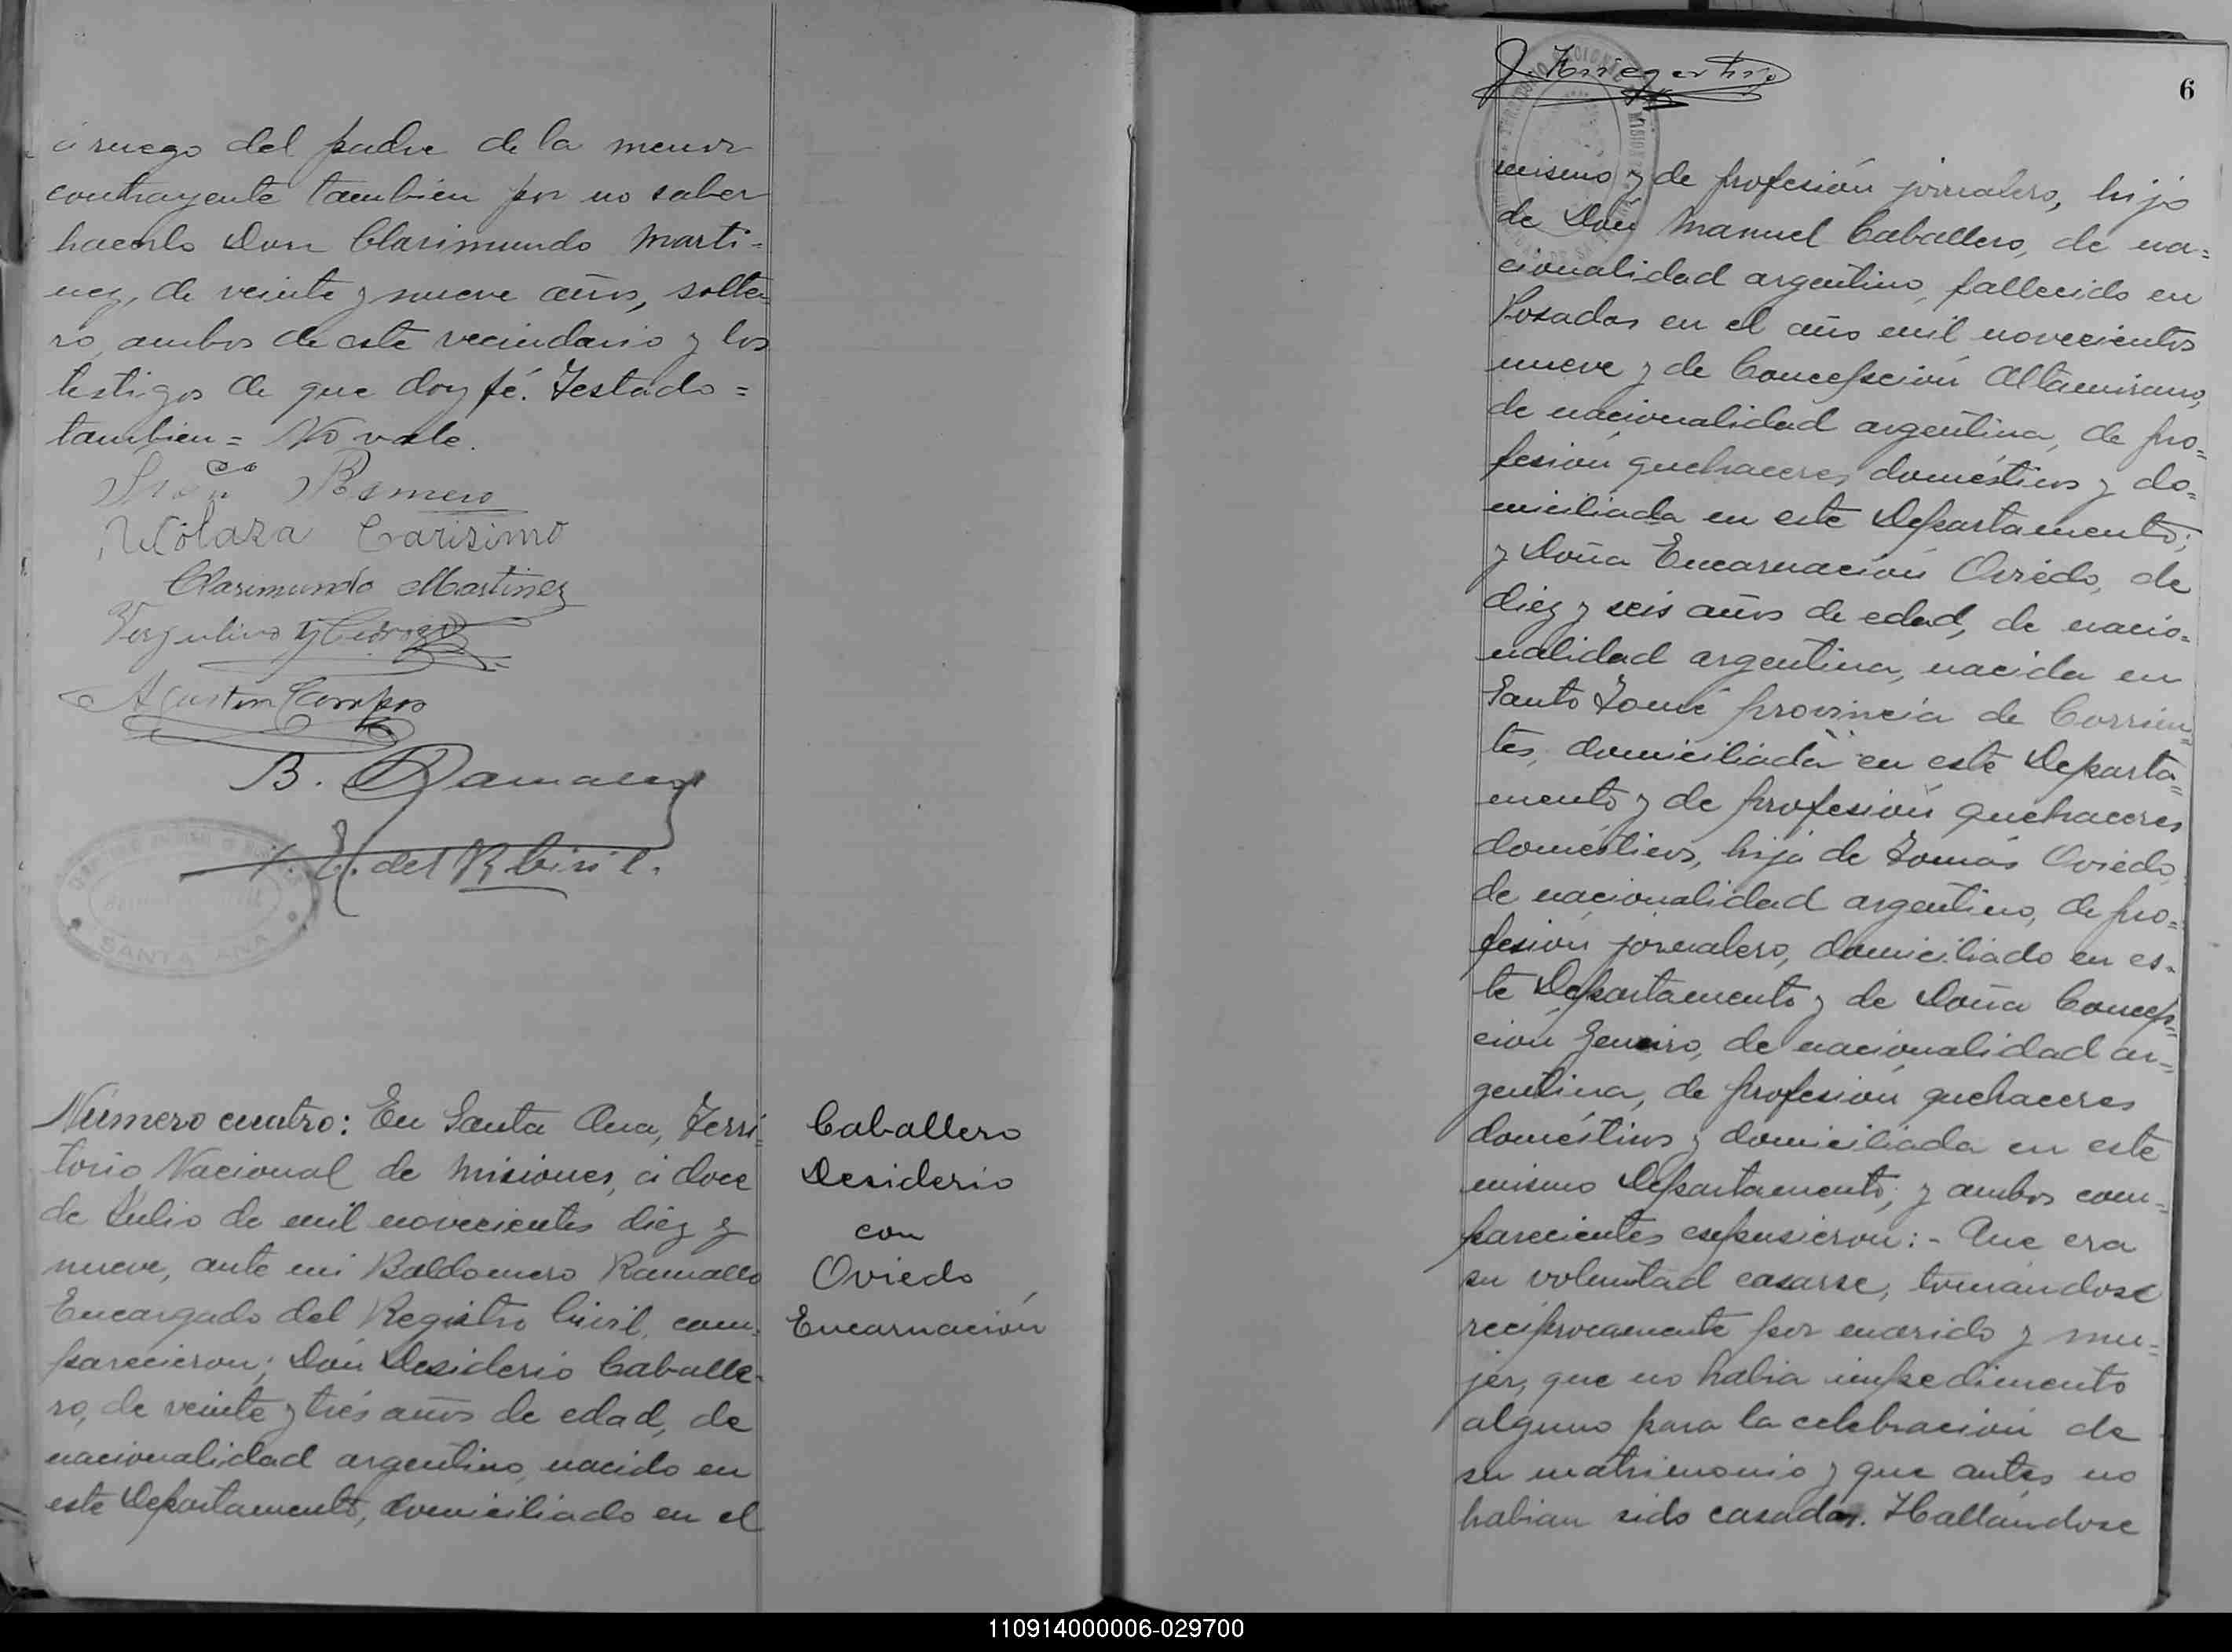 á ruego del padre de la menor
contrayente tambien por no saber
hacerlo Don Clarimundo Marti=
nez, de veinte y nueve años, solte=
ro, ambos de este vecindario y los
testigos de que doy fé. Testado =
tambien = No vale.
Romero
Nicolaza Carisimo
Clarimundo Martinez
Agustin Campos
B. Ramallo
E. del R. Civil.
SANTA ANA
Número cuatro: En Santa Ana, Terri=
torio Nacional de Misiones, á doce
de Julio de mil novecientos diez y
nueve, ante mi Baldomero Ramallo
Encargado del Registro Civil, com=
parecieron; Don Desiderio Caballe-
ro, de veinte y trés años de edad, de
nacionalidad argentino, nacido en
este Departamento, domiciliado en el
Caballero
Desiderio
con
Oviedo
Encarnación
6
mismo y de profesión jornalero, hijo
de Don Manuel Caballero, de na=
cionalidad argentino, fallecido en
Posadas en el año mil novecientos
nueve y de Concepción Altamirano,
de nacionalidad argentina, de pro=
fesión quehaceres domésticos y do=
miciliada en este Departamento;
y Doña Encarnación Oviedo, de
diez y seis años de edad, de nacio=
nalidad argentina, nacida en
Santo Tomé provincia de Corrien=
tes, domiciliada en este Departa=
mento y de profesión quehaceres
domésticos, hija de Tomás Oviedo,
de nacionalidad argentino, de pro=
fesión jornalero, domiciliado en es=
te Departamento y de Doña Concep=
ción de nacionalidad ar=
gentina, de profesión quehaceres
domésticos y domiciliada en este
mismo Departamento; y ambos com=
parecientes expusieron:- Que era
su voluntad casarse, tomándose
reciprocamente por marido y mu=
jer, que no habia impedimento
alguno para la celebración de
su matrimonio y que antes no
habian sido casados. Hallándose
110914000006-029700